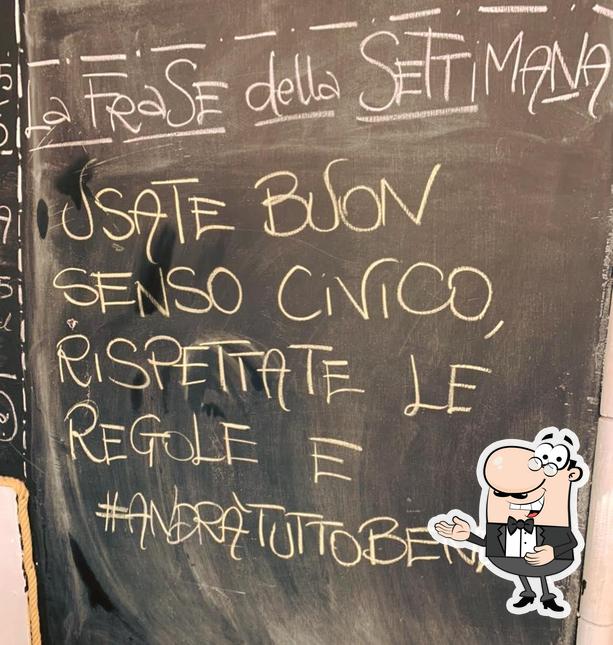 La FRaSE della SETTiMANA
USATE BUON
SENSO CiViCO,
RiSPETTATE LE
REGOLE E
#ANDRÀTUTTOBEN